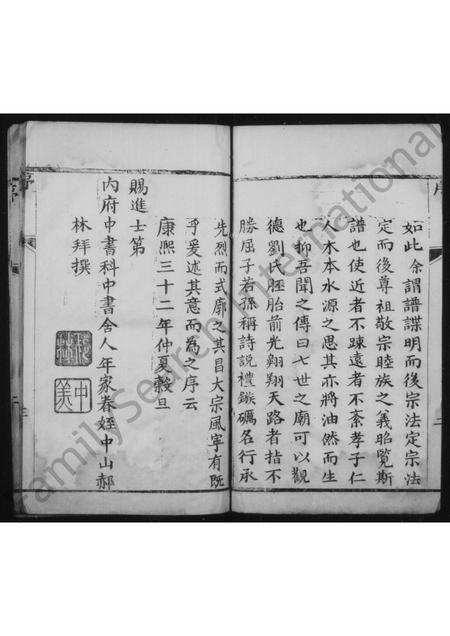 如此余謂譜諜明而後宗法定宗法
定而後尊祖敬宗睦族之義昭覽斯
譜也使近者不踈遠者不紊孝子仁
人木本水源之思其亦將油然而生
也抑吾聞之傳曰七世之廟可以觀
德劉氏胚胎前光翱翔天路者指不
勝屈子若孫稱詩說禮鏃礪名行承
先烈而式廓之其昌大宗風寧有既
乎爰述其意而為之序云
康熙三十二年仲夏穀旦
賜進士第
內府中書科中書舍人年家眷姪中山郝
林拜撰
序
中美
FamilySearch International